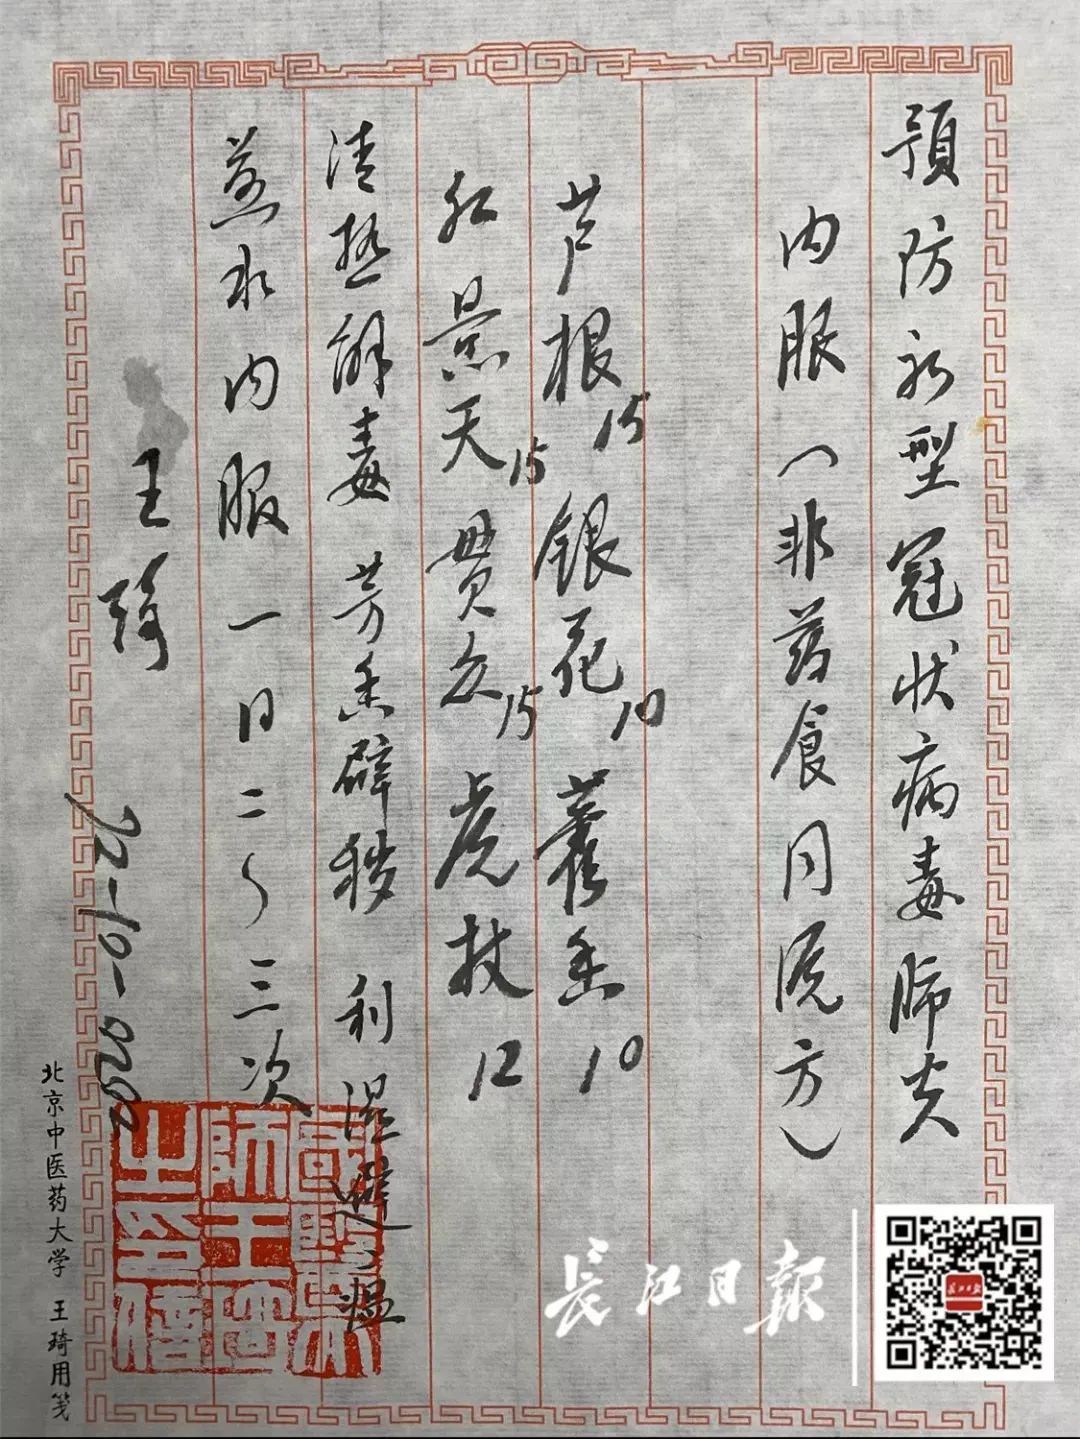 预防新型冠状病毒肺炎
内服（非药食同源方）
芦根15 银花10 藿香10
红景天15 贯众15 虎杖12
清热解毒 芳香辟秽 利湿避瘟
煎水内服 一日二~三次
王琦
2020-01-22
北京中医药大学 王琦用笺
国医大师王琦之印信
长江日报